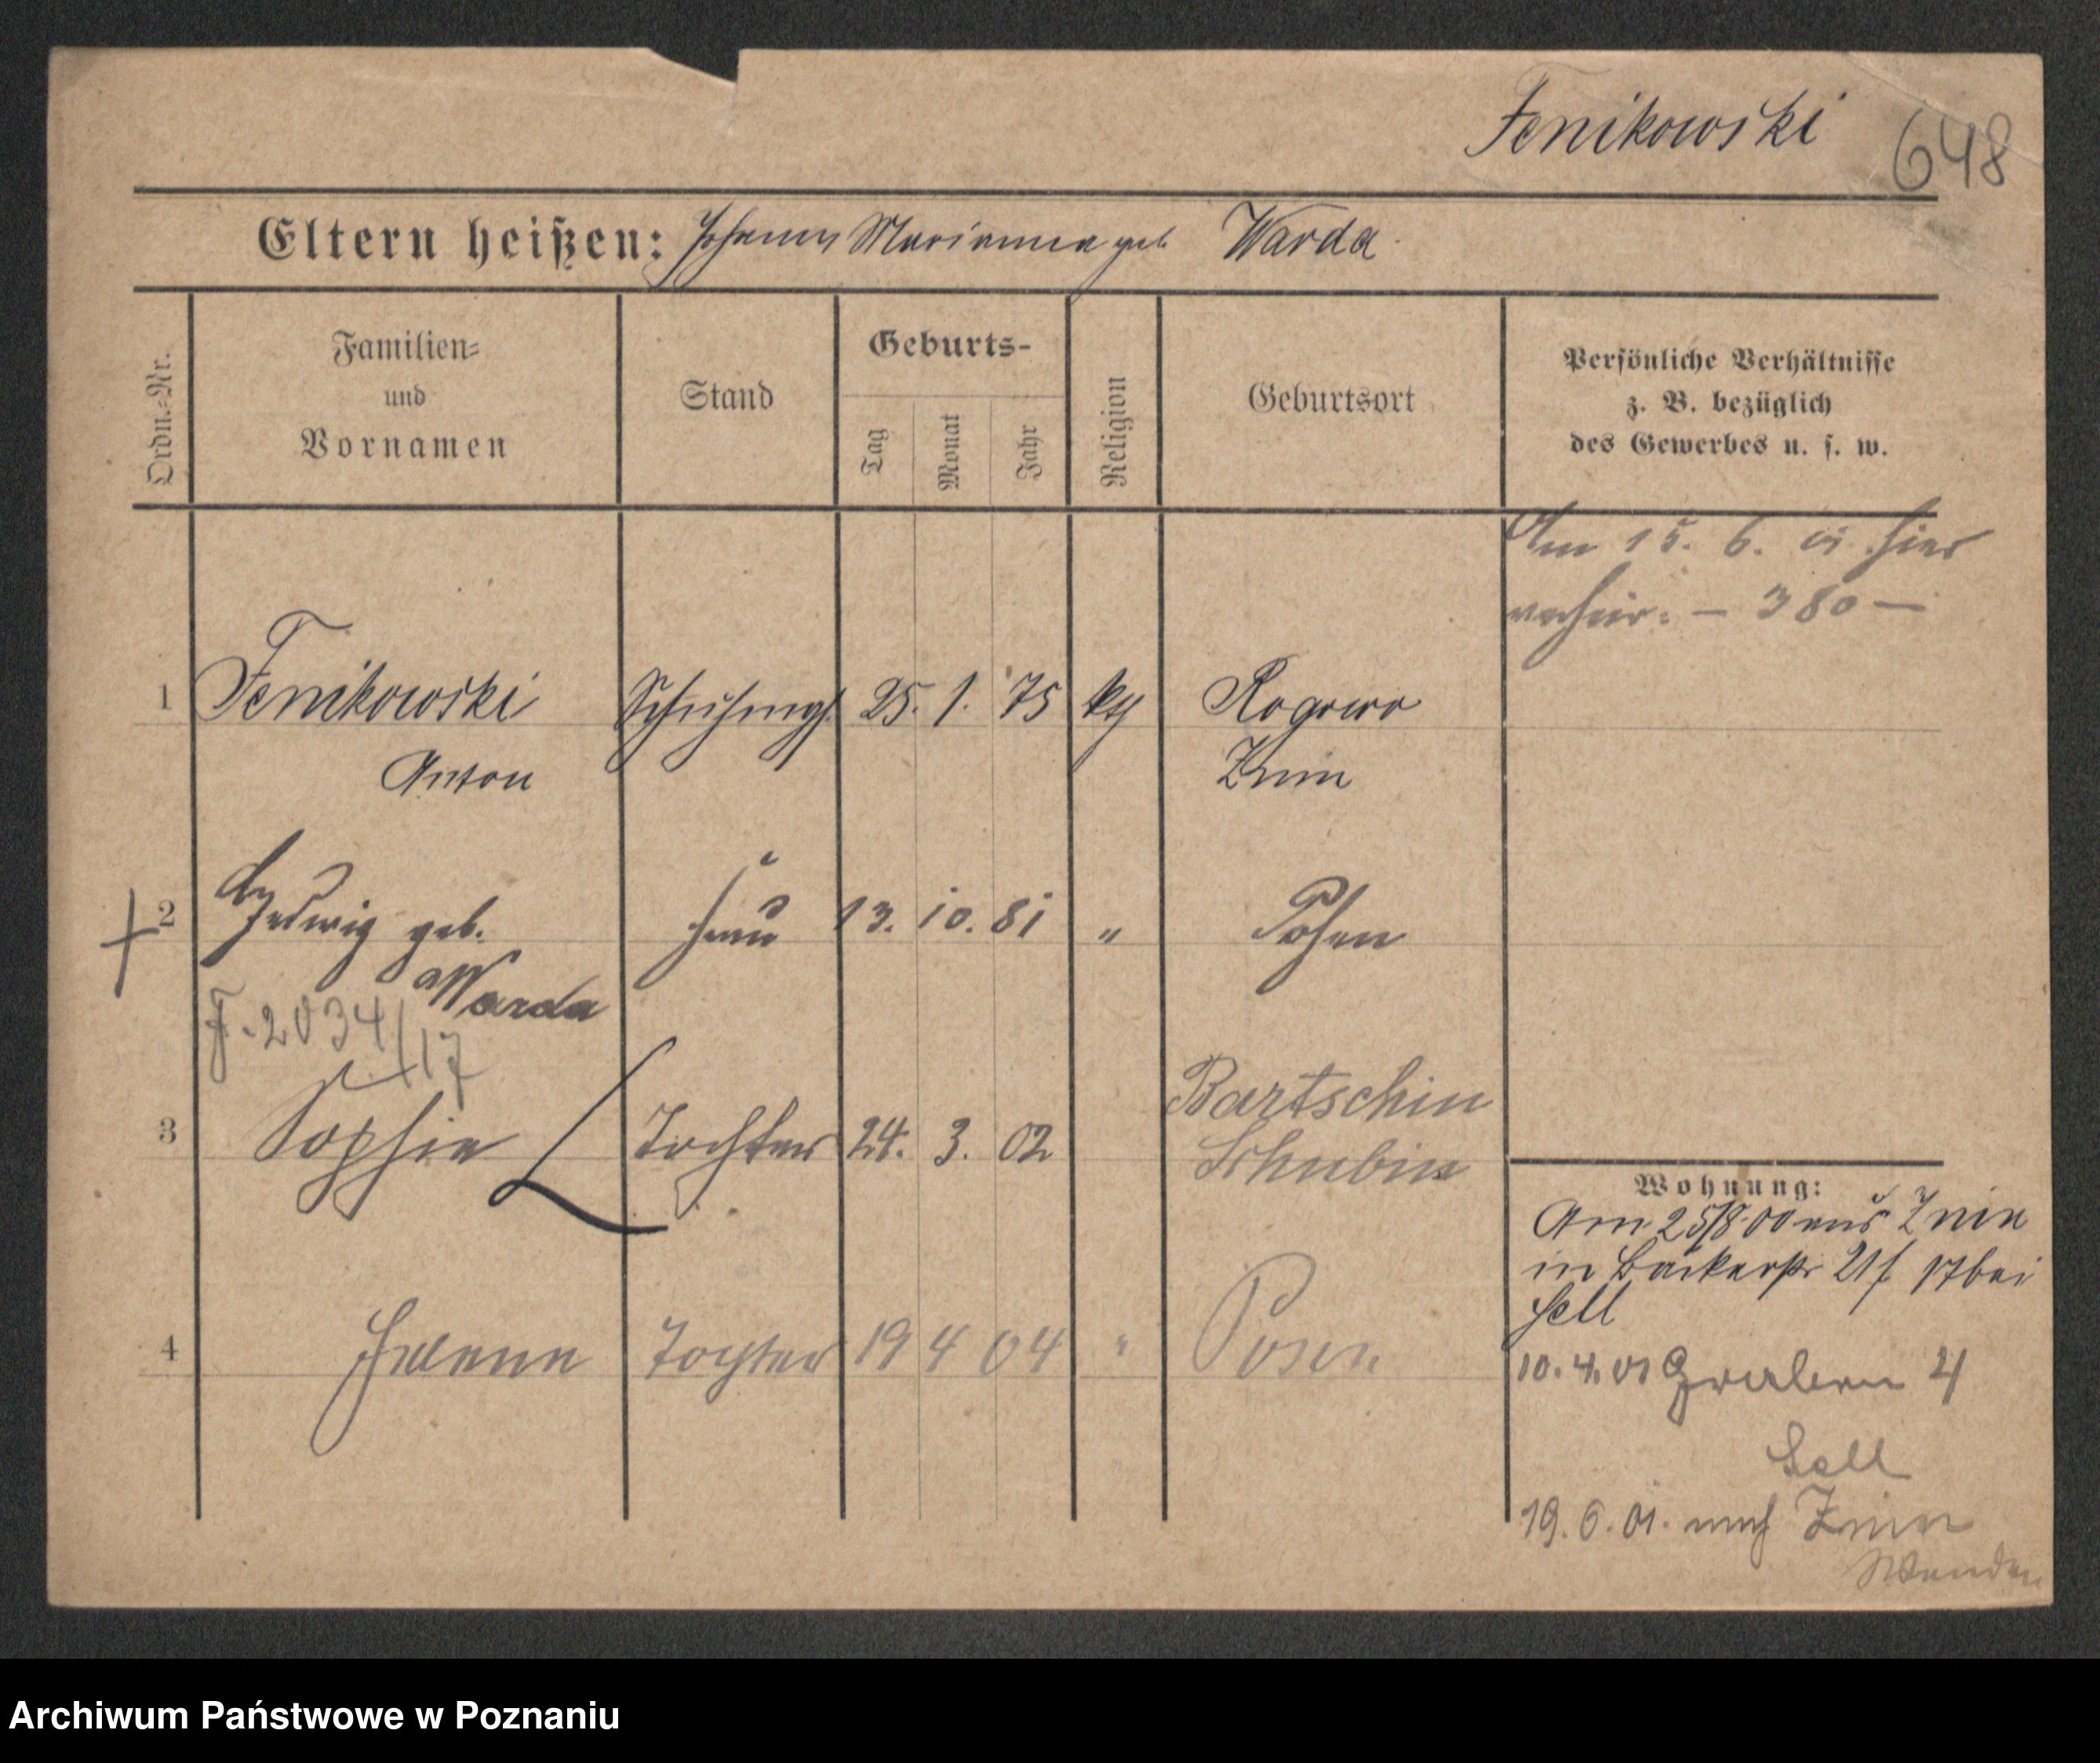 Fenikowski 648
Eltern heißen: Johann Marianna geb Warda
Ordn.=Nr.
Familien=
und
Vornamen
Stand
Geburts-
Tag
Monat
Jahr
Religion
Geburtsort
Persönliche Verhältnisse
z. B. bezüglich
des Gewerbes u. s. w.
Am 15. 6. 01 hier
verheir. – 380 –
1 Fenikowski Schuhmgs. 25. 1. 75 kth Rogowo
Anton Znin
2 Hedwig geb. Frau 13. 10. 81 " Posen
Warda
F. 2034/17
3 Sophie Tochter 24. 3. 02 Bartschin
Schubin
4 Helene Tochter 19 4 04 " Posen
Wohnung:
Am 25/8 00 aus Znin
in Bäckerstr 21/ 17 bei
Sell
10. 4. 01 4
Sell
19. 6. 01. nach Znin
Wenden
Archiwum Państwowe w Poznaniu